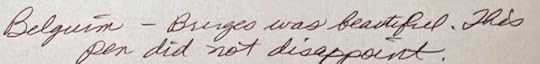 Belguim - Bruges was beautiful. This
pen did not disappoint.